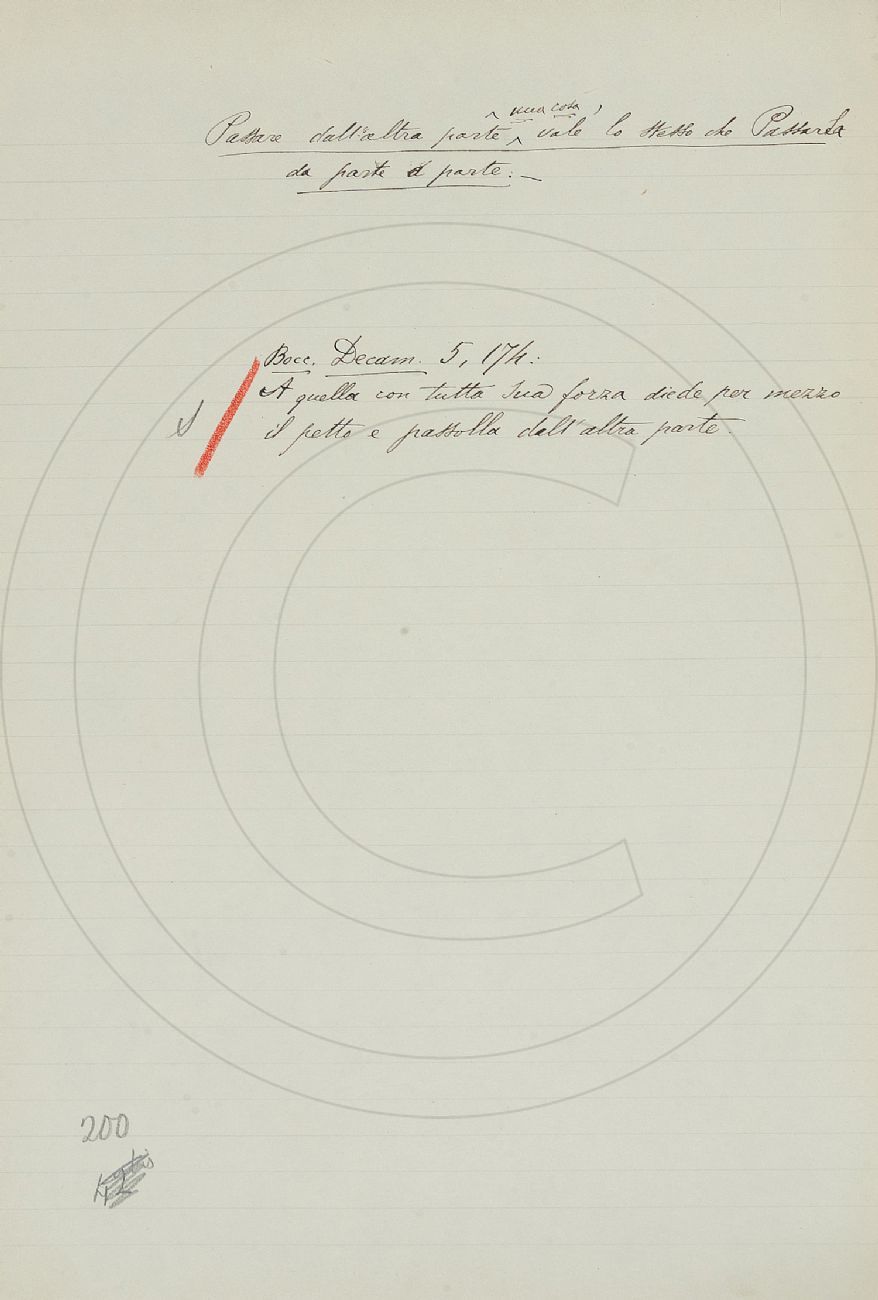 Passare dall'altra parte una cosa, vale lo stesso che Passarla
da parte a parte:—
Bocc. Decam. 5, 174:
A quella con tutta sua forza diede per mezzo
il petto e passolla dall'altra parte.
200